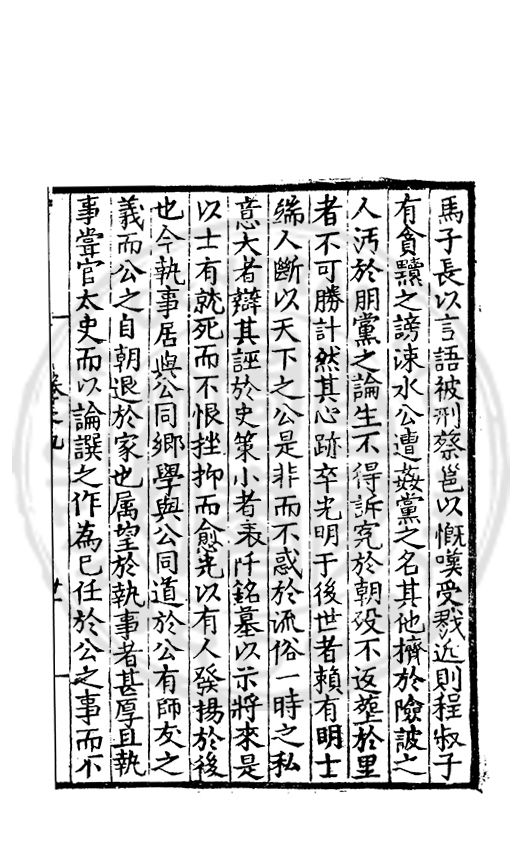 馬子長以言語被刑蔡邕以慨嘆受戮近則程叔子
有貪黷之謗涑水公遭姦黨之名其他擠於險詖之
人汚於朋黨之論生不得訴寃於朝歿不返塟於里
者不可勝計然其心跡卒光明于後世者賴有明士
端人斷以天下之公是非而不惑於流俗一時之私
意大者辯其誣於史策小者表阡銘墓以示將來是
以士有就死而不恨挫抑而愈光以有人發揚於後
也今執事居與公同鄉學與公同道於公有師友之
義而公之自朝退於家也属望於執事者甚厚且執
事甞官太史而以論譔之作為己任於公之事而不
卷之九
廿一